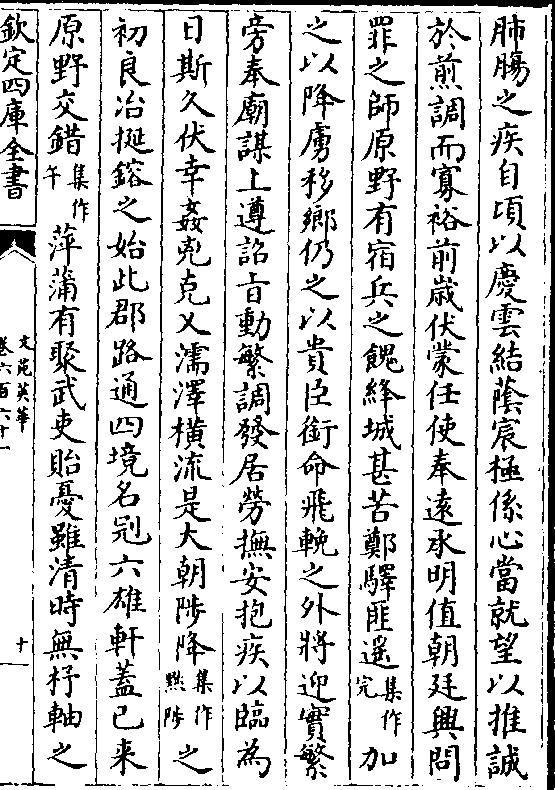 肺腸之疾自頃以慶雲結蔭宸極係心當就望以推誠
於煎調而寡裕前歳伏蒙任使奉遠承明值朝廷興問
罪之師原野有宿兵之餽絳城甚苦鄭驛匪遥集作完加
之以降虜移鄉仍之以貴臣銜命飛輓之外將迎實繁
旁奉廟謀上遵詔㫖動繁調發居勞撫安抱疾以臨為
日斯久伏幸姦兇克乂濡澤橫流是大朝陟降集作黜陟之
初良冶挻鎔之始此郡路通四境名冠六雄軒蓋已来
原野交錯集作午萍蒲有聚武吏貽憂雖清時無杼軸之
欽定四庫全書
文苑英華
卷六百六十一
十